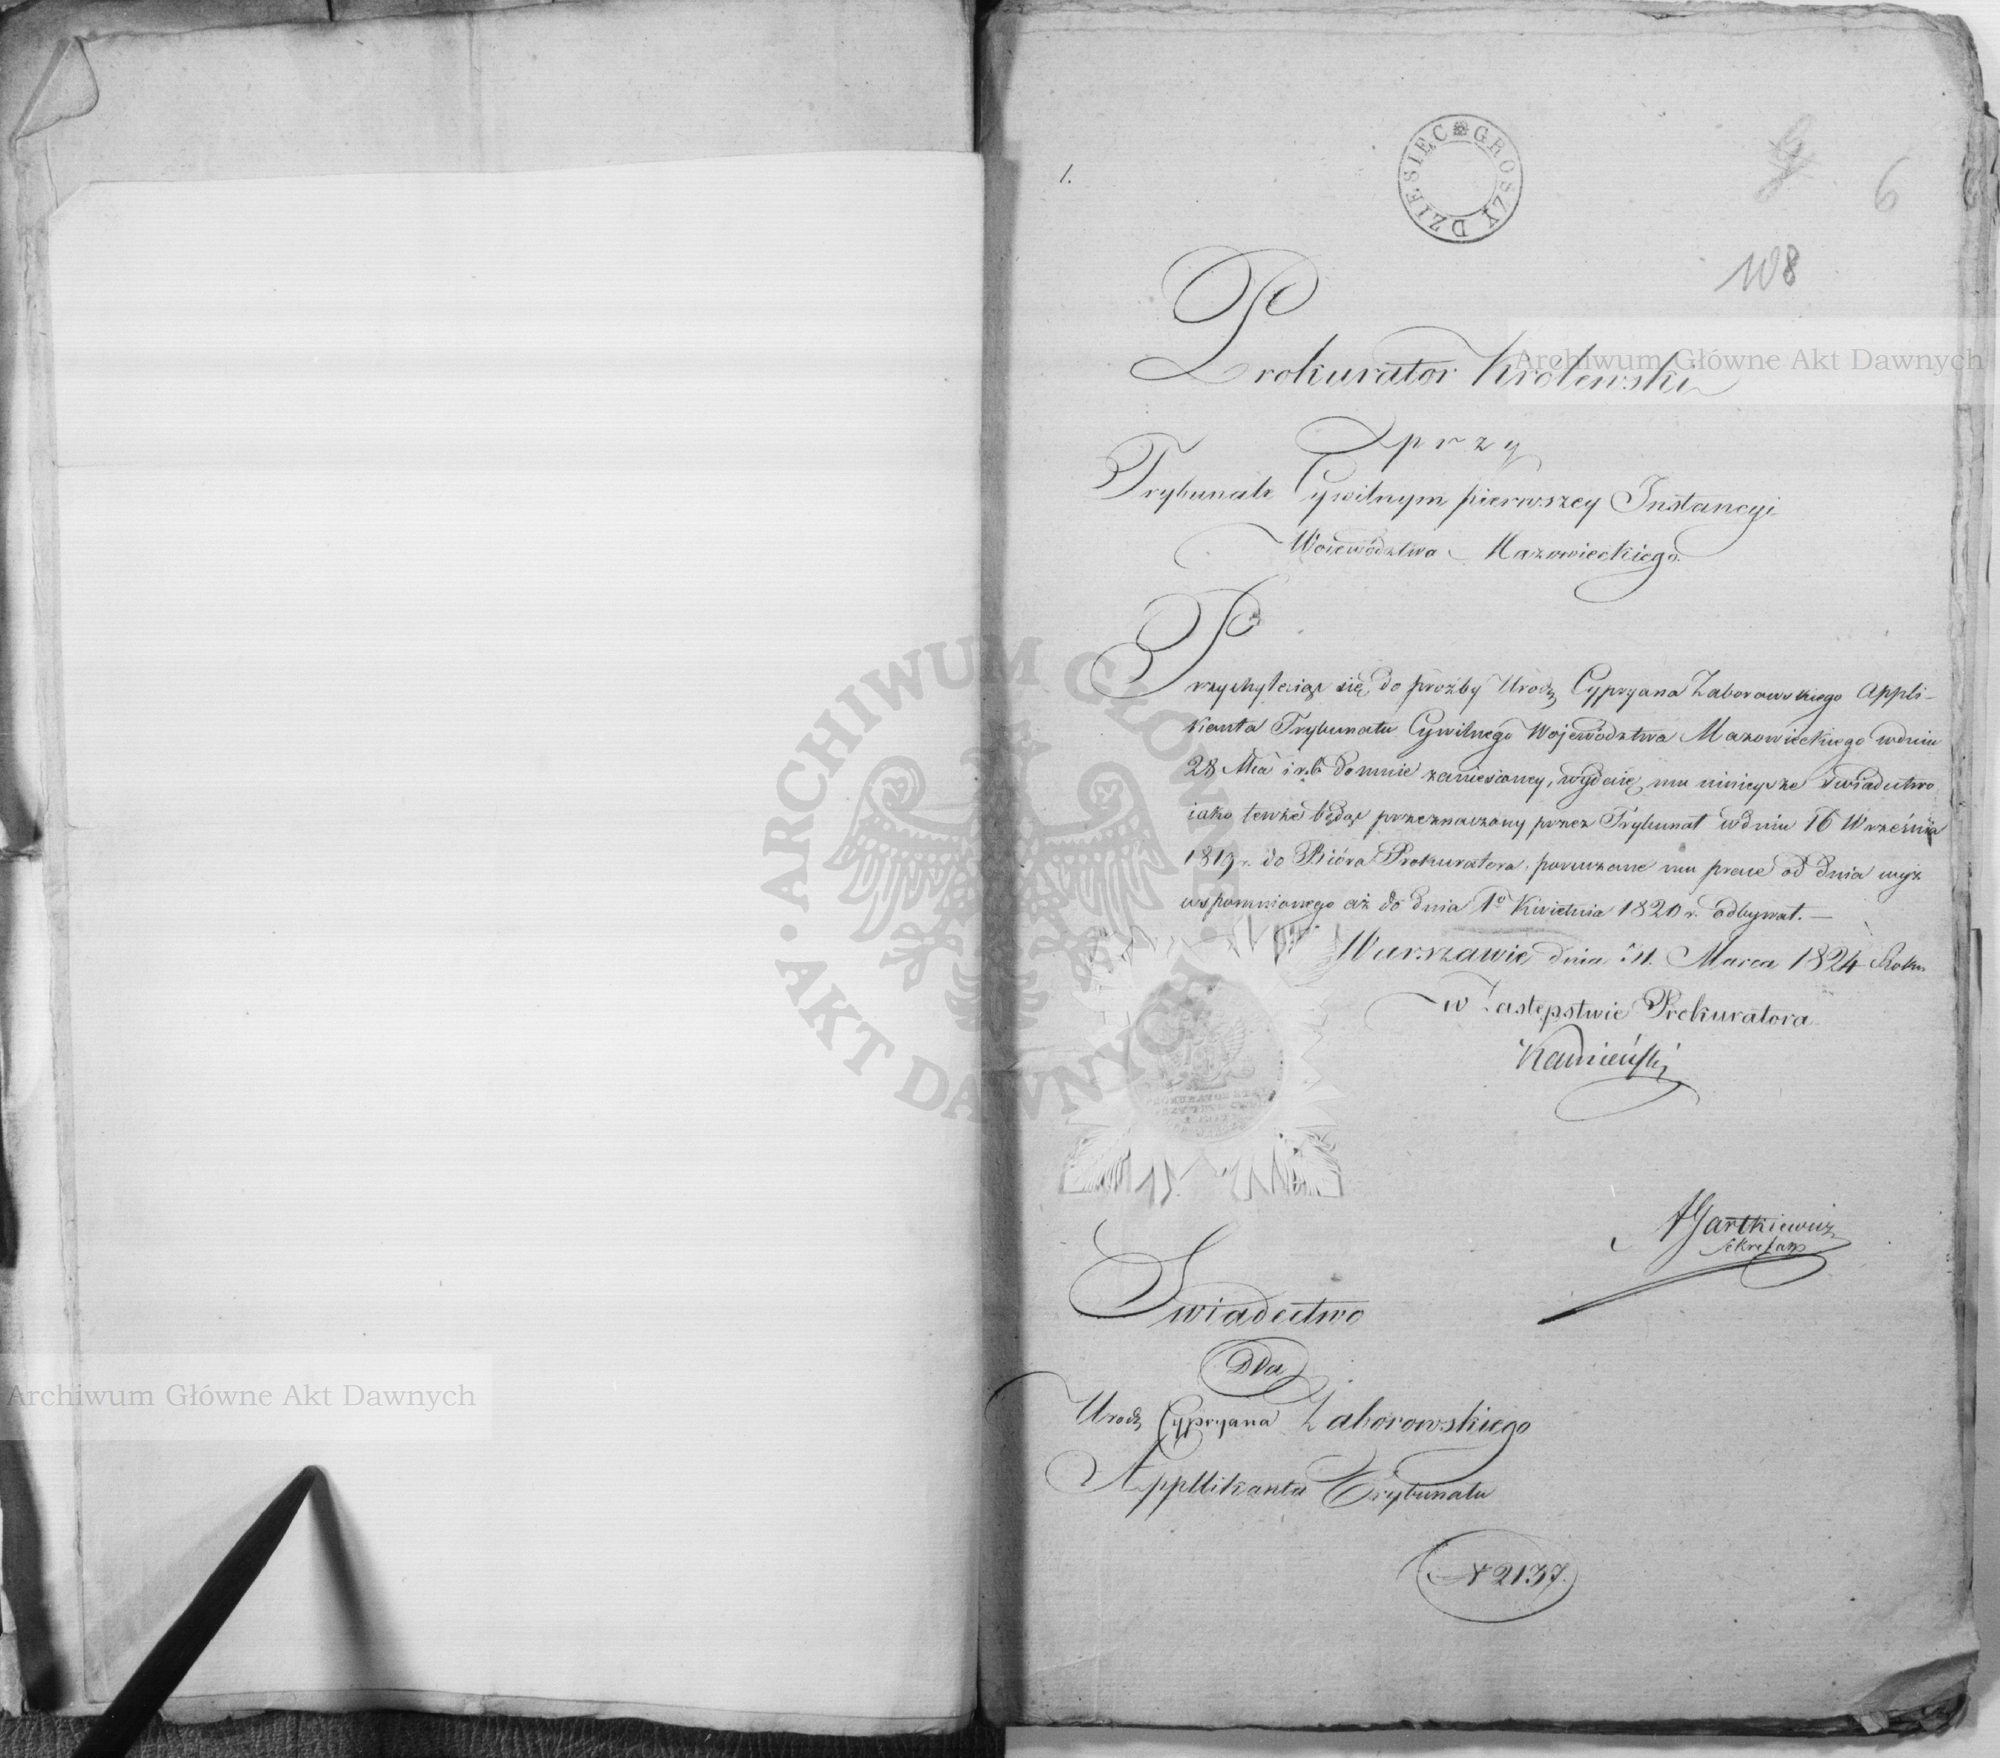 1.
DZIESIĘC GROSZY
6
108
Prokurator Królewski
przy
Trybunale Cywilnym pierwszey Instancyi
Województwa Mazowieckiego.
Przychylaiąc się do proźby Urodz. Cypryana Zaborowskiego Appli-
kanta Trybunału Cywilnego Województwa Mazowieckiego w dniu
28 Mca i r.b do mnie zaniesioney, wydaię mu ninieysze Swiadectwo
iako tenże będąc przeznaczony przez Trybunał w dniu 16 Września
1819 r. do Bióra Prokuratora, poruczone mu prace od dnia wyż
wspomnionego aż do dnia 1o Kwietnia 1820 r. odbywał. —
Warszawie dnia 11. Marca 1824 Roku
w Zastępstwie Prokuratora
Kamieński
Bartkiewicz
Sekretarz
Swiadectwo
Dla
Urodz. Cypryana Zaborowskiego
Appllikanta Trybunału
N 2137.
ARCHIWUM GŁÓWNE
AKT DAWNYCH
Archiwum Główne Akt Dawnych
Archiwum Główne Akt Dawnych